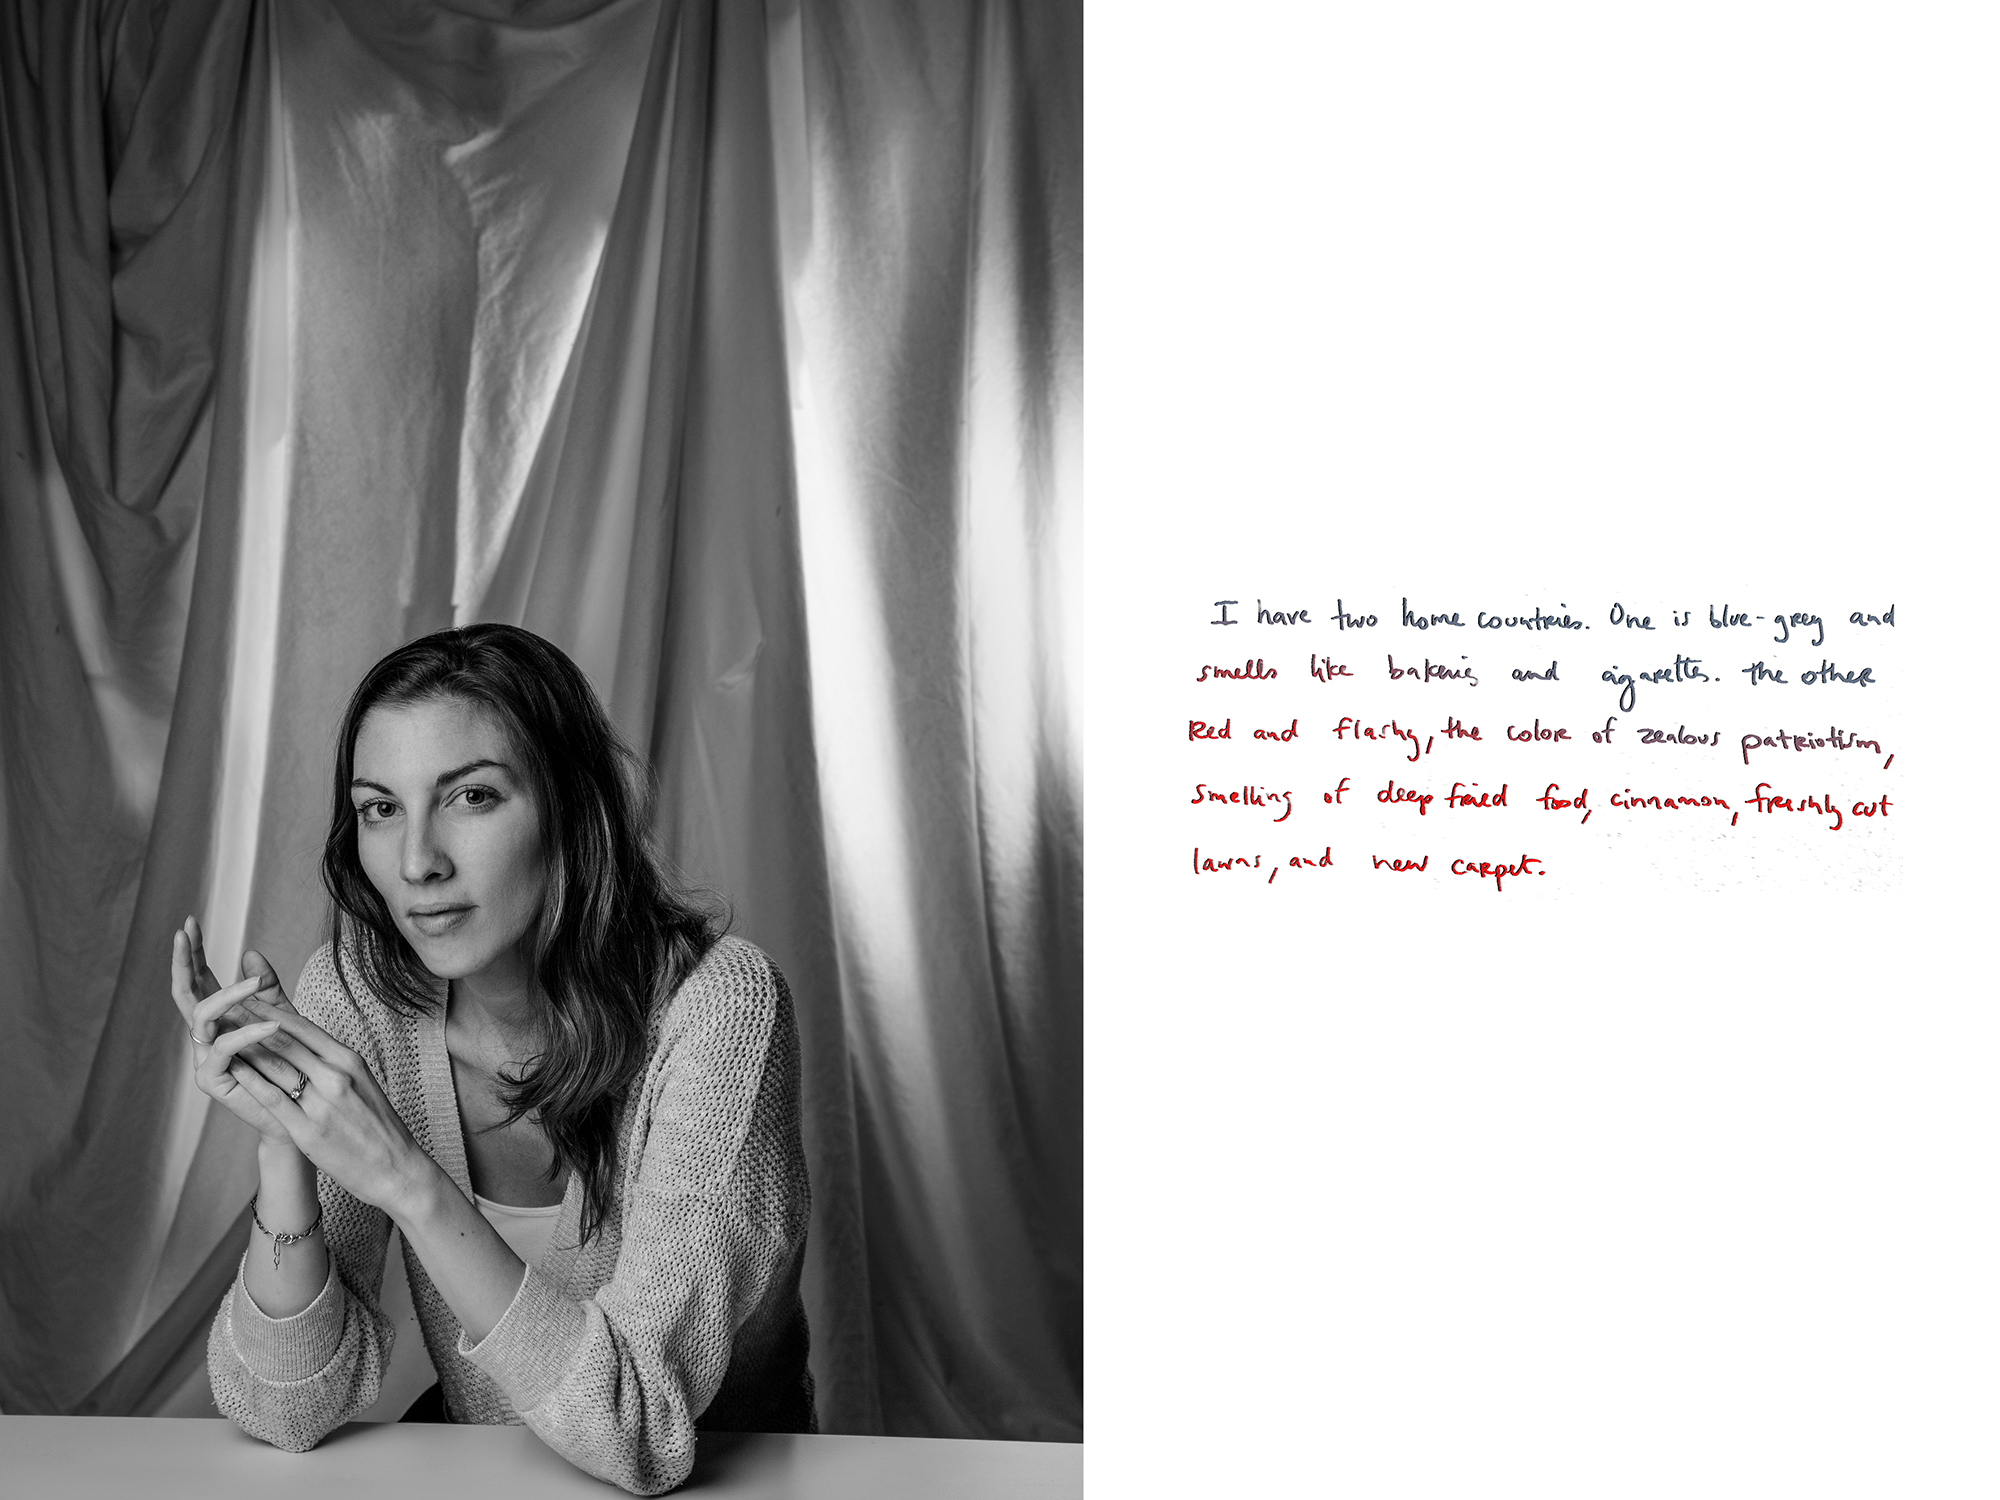 I have two home countries. One is blue-grey and
smells like bakeries and cigarettes. The other
Red and flashy, the color of zealous patriotism,
smelling of deep fried food, cinnamon, freshly cut
lawns, and new carpet.